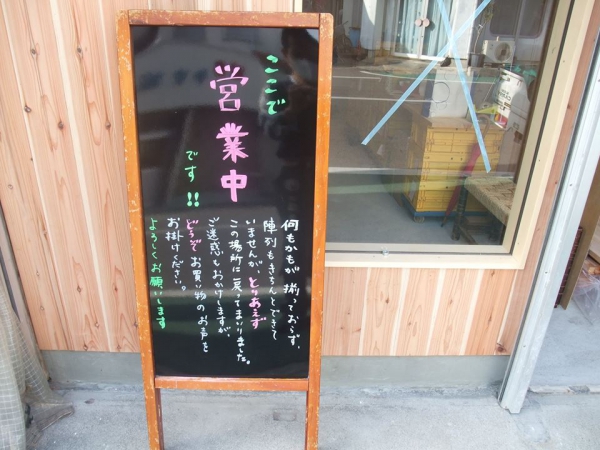 ここで
営業中
です!!
何もかもが揃っておらず、
陳列もきちんとできて
いませんが、とりあえず
この場所に戻ってまいりました。
ご迷惑もおかけしますが、
どうぞお買い物のお声を
お掛けください。
よろしくお願いします